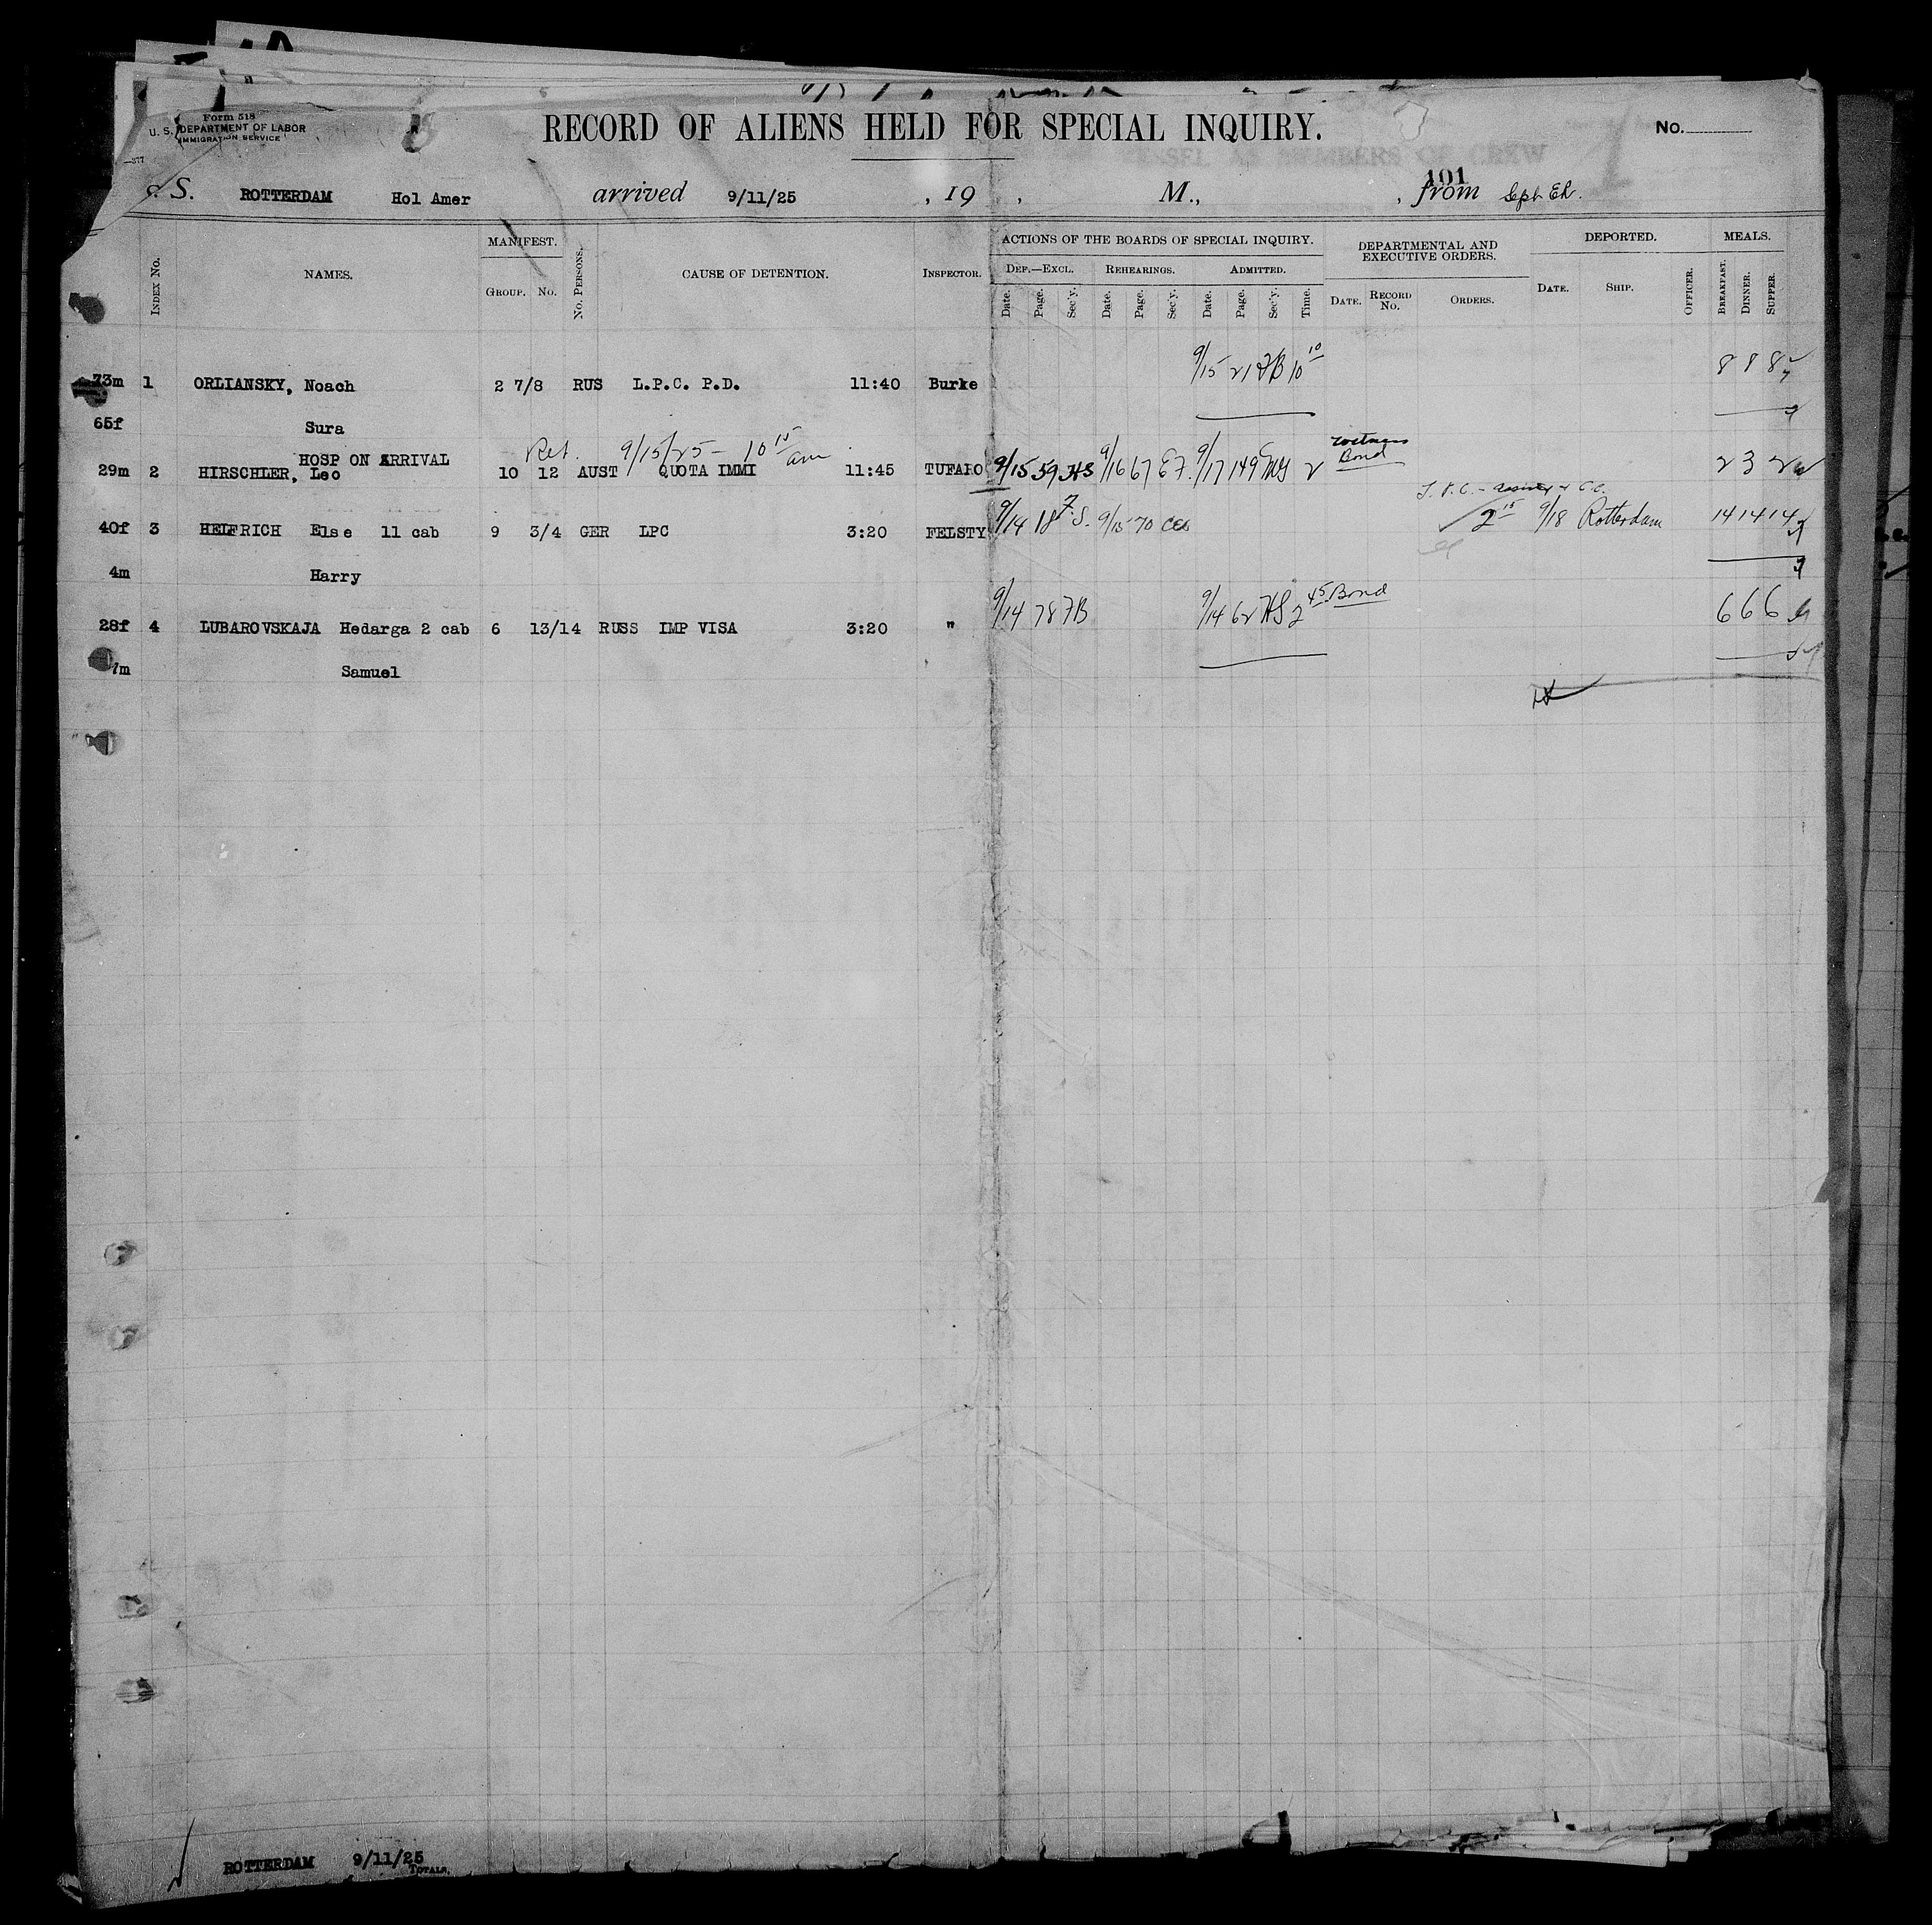 Form 518
U. S. DEPARTMENT OF LABOR
IMMIGRATION SERVICE
RECORD OF ALIENS HELD FOR SPECIAL INQUIRY.
No.
101
S. S. ROTTERDAM Hol Amer arrived 9/11/25 , 19 , M., , from
MANIFEST. ACTIONS OF THE BOARDS OF SPECIAL INQUIRY. DEPARTMENTAL AND EXECUTIVE ORDERS. DEPORTED. MEALS.
INDEX No. NAMES. GROUP. No. No. PERSONS. CAUSE OF DETENTION. INSPECTOR. DEF.—EXCL. REHEARINGS. ADMITTED.
Date. Page. Sec'y. Date. Page. Sec'y. Date. Page. Sec'y. Time. DATE. RECORD No. ORDERS. DATE. SHIP. OFFICER. BREAKFAST. DINNER. SUPPER.
73m 1 ORLIANSKY, Noach 2 7/8 RUS L.P.C. P.D. 11:40 Burke 9/15 21 FB 10 10 8 8 8
65f Sura
HOSP ON ARRIVAL Ret. 9/15/25 - 10 15 am
29m 2 HIRSCHLER, Leo 10 12 AUST QUOTA IMMI 11:45 TUFARO 9/15 59 HS 9/16 67 EF. 9/17 149 2 Bond 2 3 2
40f 3 HELFRICH Else 11 cab 9 3/4 GER LPC 3:20 FELSTY 9/14 18 F.S. 9/15 70 2 15 9/18 Rotterdam 14 14 14
4m Harry
28f 4 LUBAROVSKAJA Hedarga 2 cab 6 13/14 RUSS IMP VISA 3:20 " 9/14 78 FB 9/14 62 HS 2 45 Bond 6 6 6
7m Samuel
ROTTERDAM 9/11/25
TOTALS.